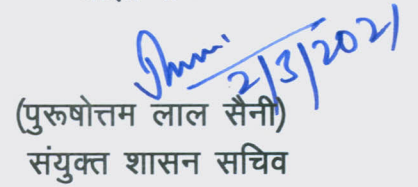 2/3/2021
(पुरूषोत्तम लाल सैनी)
संयुक्त शासन सचिव